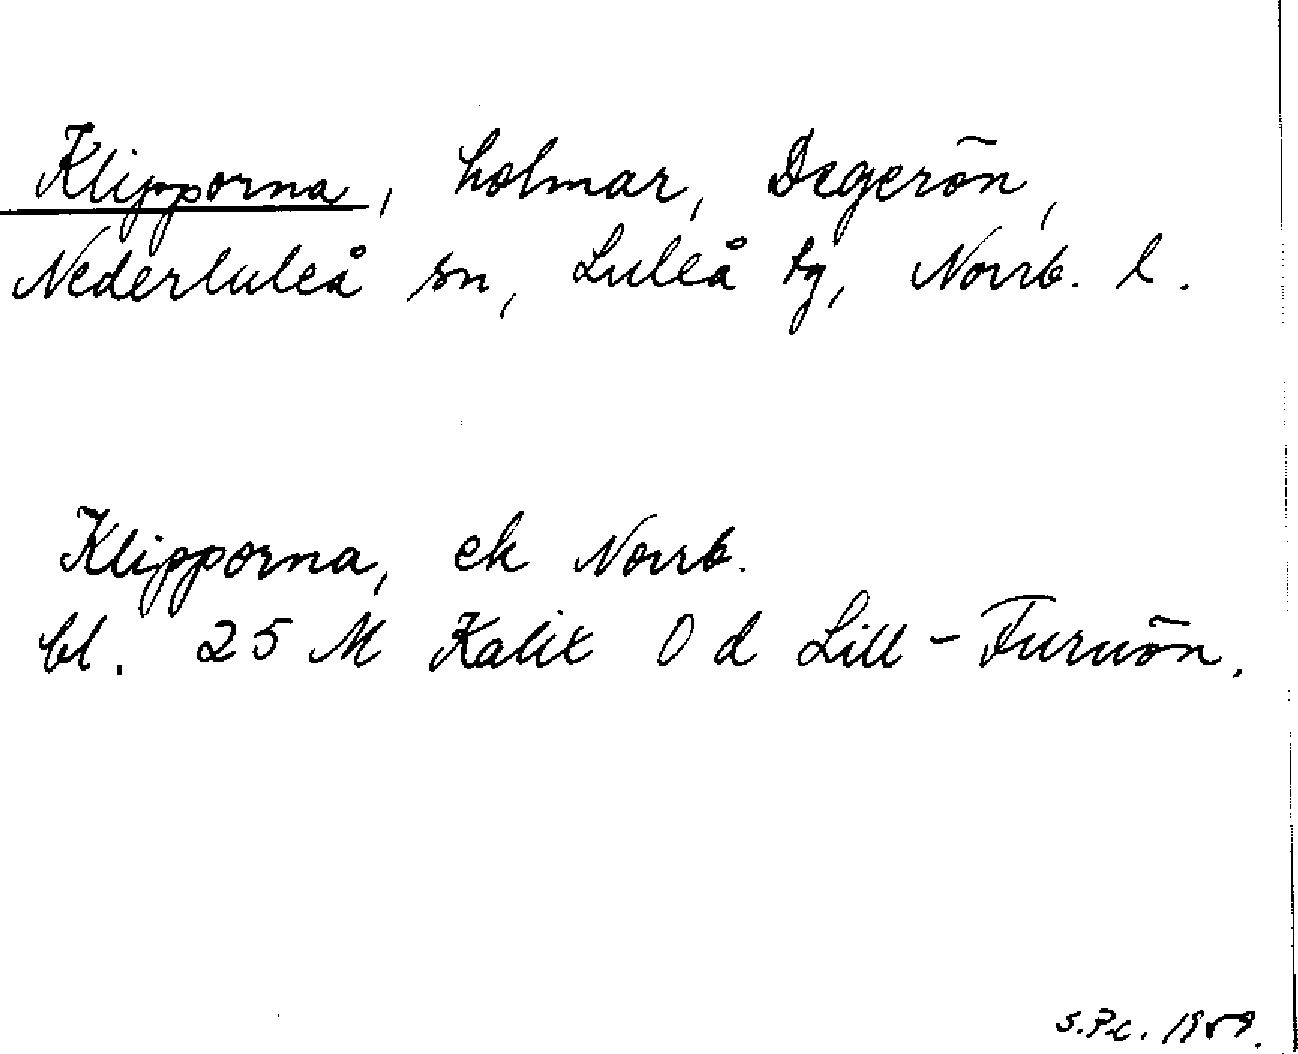 Klipporna, holmar, Degerön,
Nederluleå sn, Luleå tg, Norrb. l.
Klipporna, ek Norrb.
bl. 25 M Kalix O d Lill-Furuön.
S.Pc. 1959.